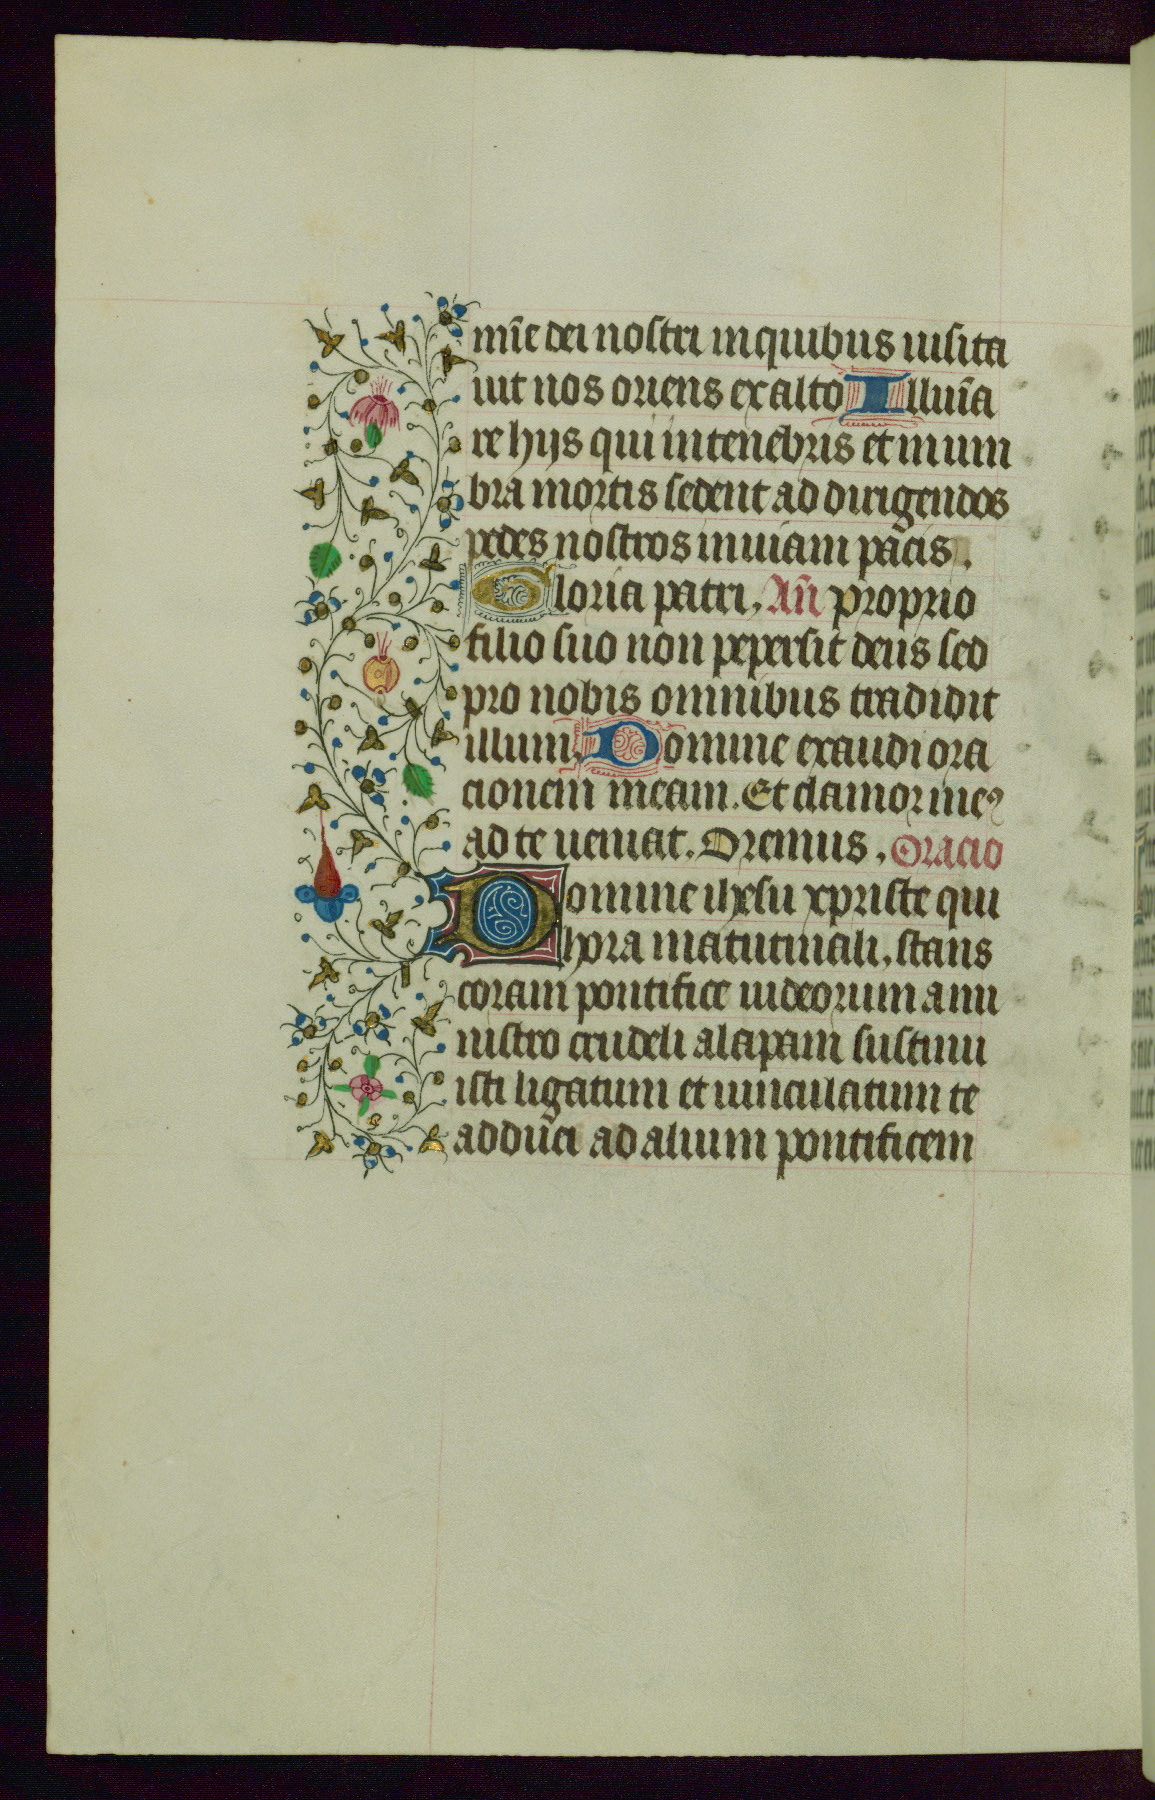 mīe dei nostri in quibus uisita
uit nos oriens ex alto Illuīa
re hijs qui in tenebris et in um
bra mortis sedent ad dirigendos
pedes nostros in uiam pacis.
Gloria patri. Añ proprio
filio suo non pepersit deus sed
pro nobis omnibus tradidit
illum. Domine exaudi ora
cionem meam. Et clamor meꝰ
ad te ueniat. Oremus. Oracio
Domine ihesu xpriste qui
hora matutinali. stans
coram pontifice iudeorum a mi
nistro crudeli alapam sustinu
isti ligatum et uinculatum te
adduci ad alium pontificem